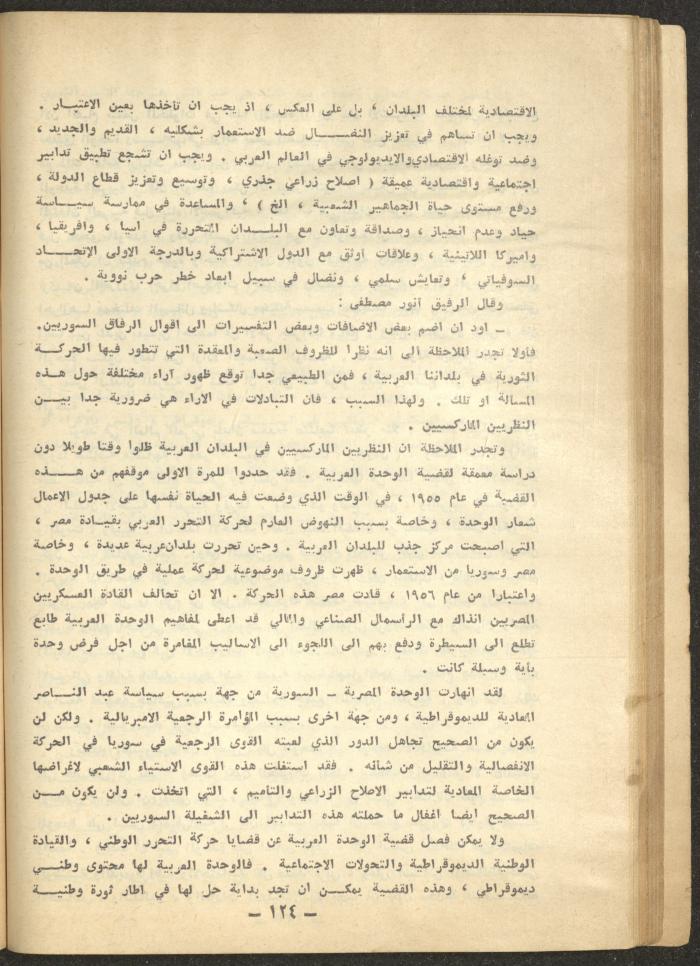 الاقتصادية لمختلف البلدان ، بل على العكس ، اذ يجب ان تأخذها بعين الاعتبـار .
ويجب ان تساهم في تعزيز النضـــال ضد الاستعمار بشكليه ، القديم والجديد ،
وضد توغله الاقتصادي والايديولوجي في العالم العربي . ويجب ان تشجع تطبيق تدابير
اجتماعية واقتصادية عميقة ( اصلاح زراعي جذري ، وتوسيع وتعزيز قطاع الدولة ،
ورفع مستوى حياة الجماهير الشعبية ، الخ ) ، والمساعدة في ممارسة سيـاسة
حياد وعدم انحياز ، وصداقة وتعاون مع البلــدان المتحررة في آسيا ، وافريقيا ،
واميركا اللاتينية ، وعلاقات اوثق مع الدول الاشتراكية وبالدرجة الاولى الإتحــاد
السوفياتي ، وتعايش سلمي ، ونضال في سبيل ابعاد خطر حرب نووية .
وقال الرفيق أنور مصطفى :
ـ اود ان اضم بعض الاضافات وبعض التفسيرات الى اقوال الرفاق السوريين.
فأولا تجدر الملاحظة الى انه نظرا للظروف الصعبة والمعقدة التي تتطور فيها الحركـة
الثورية في بلداننا العربية ، فمن الطبيعي جدا توقع ظهور آراء مختلفة حول هـذه
المسألة او تلك . ولهذا السبب ، فان التبادلات في الاراء هي ضرورية جدا بيــن
النظريين الماركسيين .
وتجدر الملاحظة ان النظريين الماركسيين في البلدان العربية ظلوا وقتا طويلا دون
دراسة معمقة لقضية الوحدة العربية . فقد حددوا للمرة الاولى موقفهم من هـــذه
القضية في عام ١٩٥٥ ، في الوقت الذي وضعت فيه الحياة نفسها على جدول الاعمال
شعار الوحدة ، وخاصة بسبب النهوض العارم لحركة التحرر العربي بقيـادة مصر ،
التي اصبحت مركز جذب للبلدان العربية . وحين تحررت بلدان عربية عديدة ، وخاصة
مصر وسوريا من الاستعمار ، ظهرت ظروف موضوعية لحركة عملية في طريق الوحدة .
واعتبارا من عام ١٩٥٦ ، قادت مصر هذه الحركة . الا ان تحالف القادة العسكريين
المصريين انذاك مع الرأسمال الصناعي والمالي قد اعطى لمفاهيم الوحدة العربية طابع
تطلع الى السيطرة ودفع بهم الى اللجوء الى الاساليب المغامرة من اجل فرض وحدة
بأية وسيلة كانت .
لقد انهارت الوحدة المصرية ـ السورية من جهة بسبب سياسة عبد النـاصر
المعادية للديموقراطية ، ومن جهة اخرى بسبب المؤامرة الرجعية الامبريالية . ولكن لن
يكون من الصحيح تجاهل الدور الذي لعبته القوى الرجعية في سوريا في الحركة
الانفصالية والتقليل من شأنه . فقد استغلت هذه القوى الاستياء الشعبي لاغراضها
الخاصة المعادية لتدابير الاصلاح الزراعي والتأميم ، التي اتخذت . ولن يكون مــن
الصحيح ايضا اغفال ما حملته هذه التدابير الى الشغيلة السوريين .
ولا يمكن فصل قضية الوحدة العربية عن قضايا حركة التحرر الوطني ، والقيادة
الوطنية الديموقراطية والتحولات الاجتماعية . فالوحدة العربية لها محتوى وطنـي
ديموقراطي ، وهذه القضية يمكــن ان تجد بداية حل لها في اطار ثورة وطنيـة
ـ ١٢٤ ـ